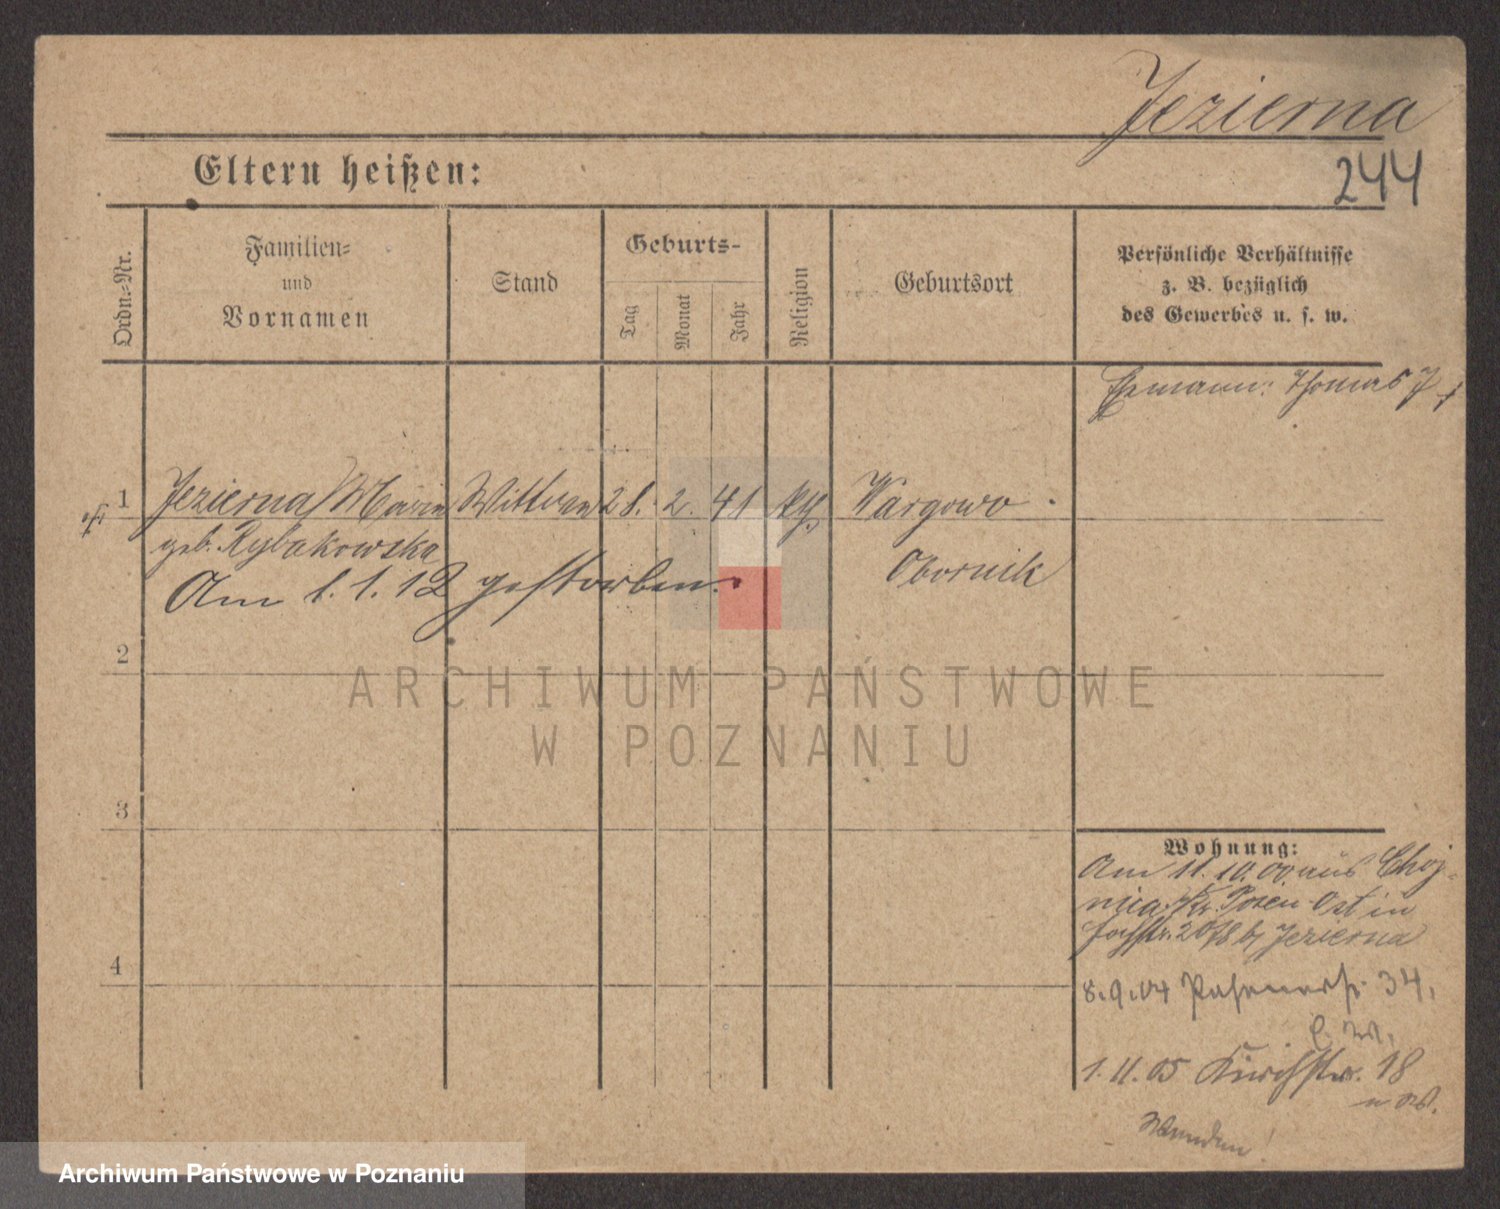 Jezierna
244
Eltern heißen:
Ordn.-Nr.
Familien-
und
Vornamen
Stand
Geburts-
Tag
Monat
Jahr
Religion
Geburtsort
Persönliche Verhältnisse
z. B. bezüglich
des Gewerbes u. s. w.
Ehemann: Thomas J. †
1 Jezierna Maria Wittwe 28. 2. 41 kth. Wargowo
geb. Rybakowska Obornik
Am 1. 1. 12 gestorben.
2
3
4
Wohnung:
Am 11. 10. 00 aus Choj-
nica Kr. Posen-Ost in
20/8 b/ Jezierna
8.9.04 34,
1. 11. 05 Kirchstr. 18
Wenden!
ARCHIWUM PAŃSTWOWE
W POZNANIU
Archiwum Państwowe w Poznaniu